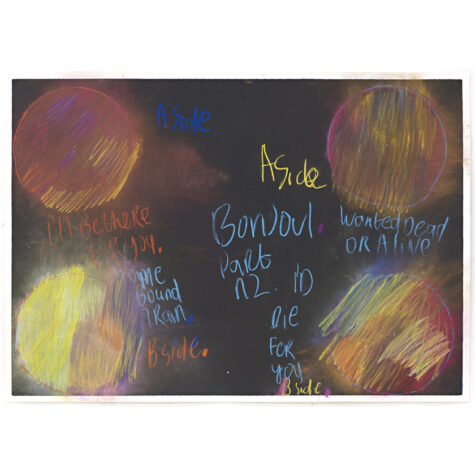 A side
A side
I'll Be there
for you.
BonJovi.
Part
n2. I'D
DIE
FOR
YOU
B side.
Wanted Dead
OR Alive
ome
Bound
TRain.
B side.